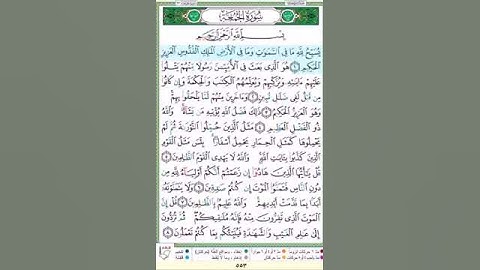 سُورَةُ الجُمُعَةِ
بِسْمِ اللَّهِ الرَّحْمَٰنِ الرَّحِيمِ
يُسَبِّحُ لِلَّهِ مَا فِي السَّمَٰوَٰتِ وَمَا فِي الْأَرْضِ الْمَلِكِ الْقُدُّوسِ الْعَزِيزِ
الْحَكِيمِ ١ هُوَ الَّذِي بَعَثَ فِي الْأُمِّيِّـۧنَ رَسُولًا مِّنْهُمْ يَتْلُوا
عَلَيْهِمْ ءَايَٰتِهِ وَيُزَكِّيهِمْ وَيُعَلِّمُهُمُ الْكِتَٰبَ وَالْحِكْمَةَ وَإِن كَانُوا
مِن قَبْلُ لَفِي ضَلَٰلٍ مُّبِينٍ ٢ وَءَاخَرِينَ مِنْهُمْ لَمَّا يَلْحَقُوا بِهِمْ
وَهُوَ الْعَزِيزُ الْحَكِيمُ ٣ ذَٰلِكَ فَضْلُ اللَّهِ يُؤْتِيهِ مَن يَشَاءُ وَاللَّهُ
ذُو الْفَضْلِ الْعَظِيمِ ٤ مَثَلُ الَّذِينَ حُمِّلُوا التَّوْرَىٰةَ ثُمَّ لَمْ
يَحْمِلُوهَا كَمَثَلِ الْحِمَارِ يَحْمِلُ أَسْفَارًا بِئْسَ مَثَلُ الْقَوْمِ
الَّذِينَ كَذَّبُوا بِـَٔايَٰتِ اللَّهِ وَاللَّهُ لَا يَهْدِي الْقَوْمَ الظَّٰلِمِينَ ٥
قُلْ يَٰٓأَيُّهَا الَّذِينَ هَادُوا إِن زَعَمْتُمْ أَنَّكُمْ أَوْلِيَاءُ لِلَّهِ مِن
دُونِ النَّاسِ فَتَمَنَّوُا الْمَوْتَ إِن كُنتُمْ صَٰدِقِينَ ٦ وَلَا يَتَمَنَّوْنَهُ
أَبَدًا بِمَا قَدَّمَتْ أَيْدِيهِمْ وَاللَّهُ عَلِيمٌ بِالظَّٰلِمِينَ ٧ قُلْ إِنَّ
الْمَوْتَ الَّذِي تَفِرُّونَ مِنْهُ فَإِنَّهُ مُلَٰقِيكُمْ ثُمَّ تُرَدُّونَ
إِلَىٰ عَٰلِمِ الْغَيْبِ وَالشَّهَٰدَةِ فَيُنَبِّئُكُم بِمَا كُنتُمْ تَعْمَلُونَ ٨
٥٥٣